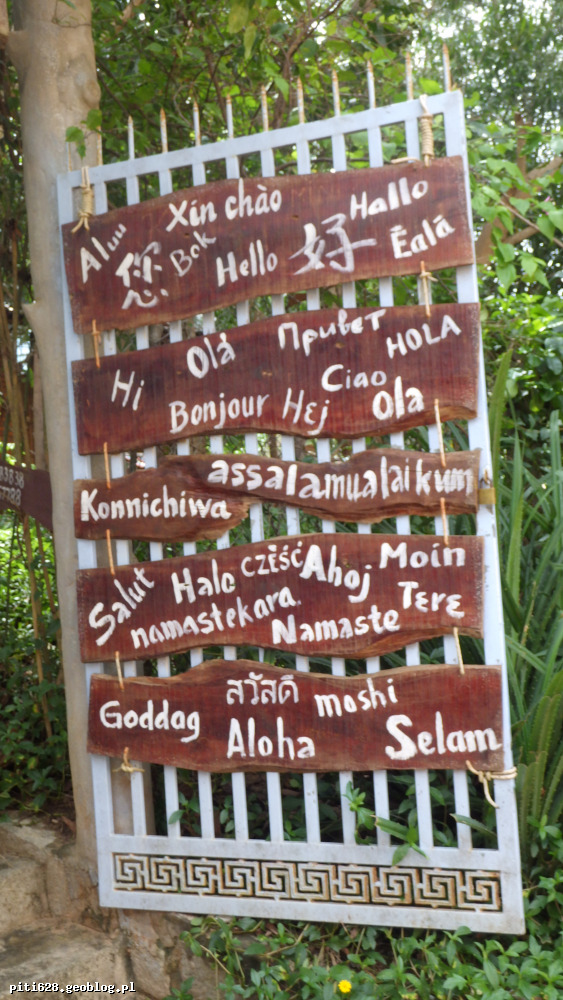 Xin chào Hallo
Aluu 您 Bok Hello 好 Ēalá
Olá Привет HOLA
Hi Ciao
Bonjour Hej Ola
assalamualaikum
Konnichiwa
Salut Halo CZEŚĆ Ahoj Moin
namastekara Namaste Tere
สวัสดี moshi
Goddag Aloha Selam
piti628.geoblog.pl